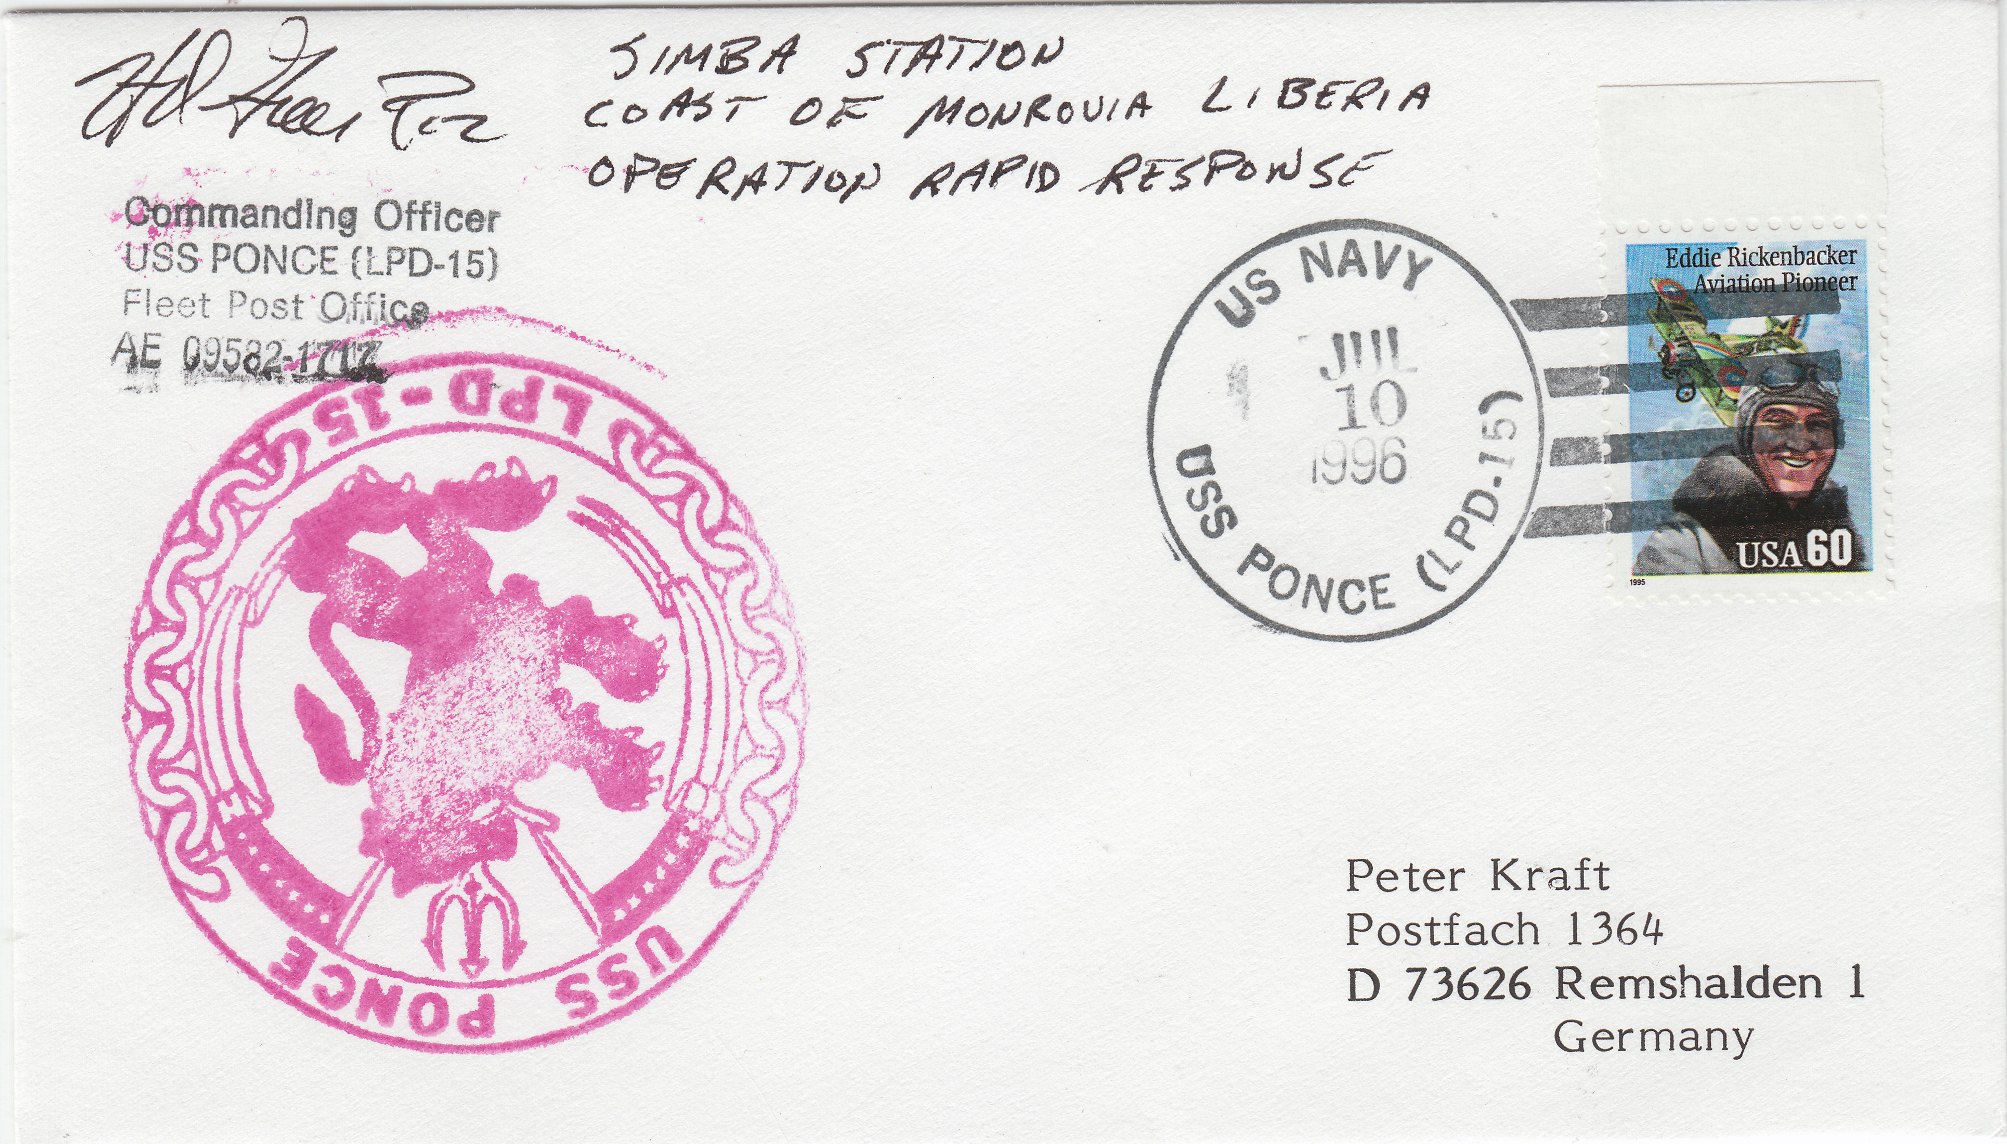 SIMBA STATION
COAST OF MONROVIA LIBERIA
OPERATION RAPID RESPONSE
Commanding Officer
USS PONCE (LPD-15)
Fleet Post Office
AE 09582-1717
US NAVY
JUL
10
1996
USS PONCE (LPD-15)
Eddie Rickenbacker
Aviation Pioneer
USA 60
1995
LPD-15
USS PONCE
Peter Kraft
Postfach 1364
D 73626 Remshalden 1
Germany